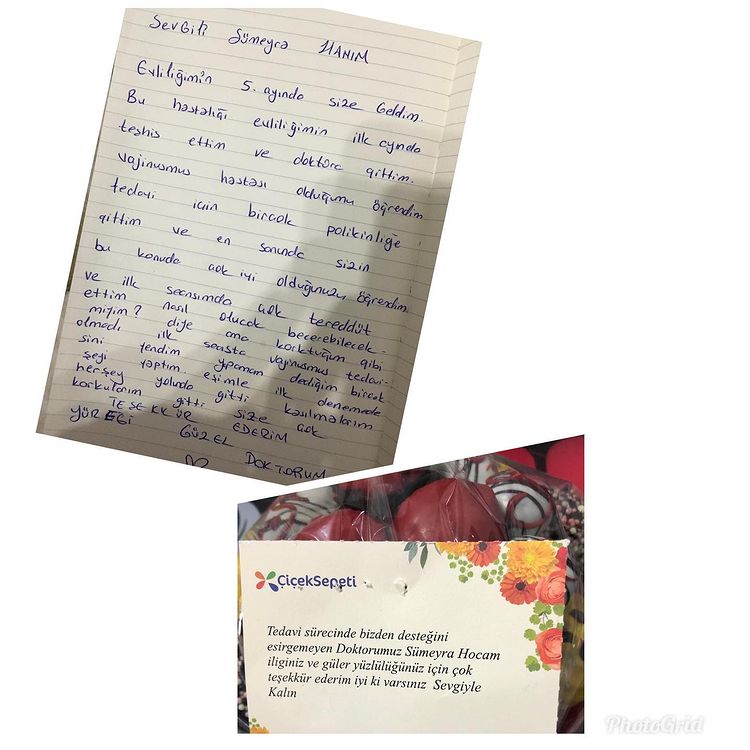 Sevgili Sümeyra HANIM
Evliliğimin 5. ayında size Geldim.
Bu hastalığı evliliğimin ilk ayında
teşhis ettim ve doktora gittim.
vajinusmus hastası olduğumu öğrendim
tedavi için birçok polikinliğe
gittim ve en sonunda sizin
bu konuda çok iyi olduğunuzu öğrendim.
ve ilk seansımda çok tereddüt
ettim nasıl olucak becerebilecek-
miyim? diye ama korktuğum gibi
olmadı ilk seasta vajinusmus tedavi-
sini yendim ypamam dediğim birçok
şeyi yaptım. eşimle ilk denemede
herşey yolunda gitti kasılmalarım
korkularım gitti size çok
TEŞEKKÜR EDERİM
YÜREĞİ GÜZEL DOKTORUM
ÇiçekSepeti
Tedavi sürecinde bizden desteğini
esirgemeyen Doktorumuz Sümeyra Hocam
iliginiz ve güler yüzlülüğünüz için çok
teşekkür ederim iyi ki varsınız Sevgiyle
Kalın
PhotoGrid